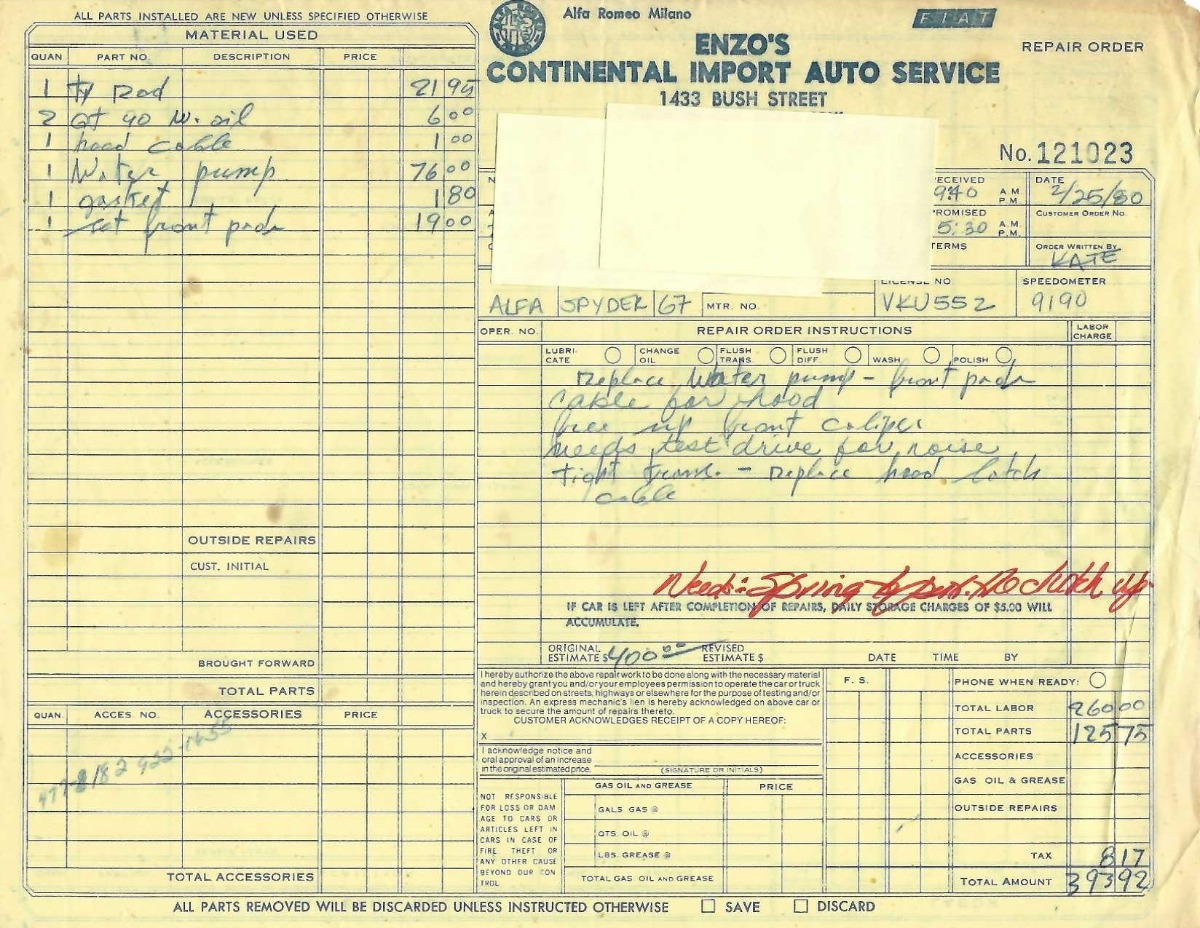 ALL PARTS INSTALLED ARE NEW UNLESS SPECIFIED OTHERWISE
MATERIAL USED
QUAN PART NO. DESCRIPTION PRICE
1 ty Rod 21 95
2 Qt 90 W. oil 6 00
1 hood cable 1 00
1 Water pump 76 00
1 gasket 1 80
1 set front pads 19 00
OUTSIDE REPAIRS
CUST. INITIAL
BROUGHT FORWARD
TOTAL PARTS
QUAN. ACCES NO. ACCESSORIES PRICE
TOTAL ACCESSORIES
Alfa Romeo Milano
FIAT
ENZO'S
REPAIR ORDER
CONTINENTAL IMPORT AUTO SERVICE
1433 BUSH STREET
No. 121023
ECEIVED 9:40 A.M. P.M. DATE 2/25/80
ROMISED 5:30 A.M. P.M. CUSTOMER ORDER NO.
TERMS ORDER WRITTEN BY KATE
ALFA SPYDER 67 MTR. NO. LICENSE NO VKU552 SPEEDOMETER 9190
OPER. NO. REPAIR ORDER INSTRUCTIONS LABOR CHARGE
LUBRICATE CHANGE OIL FLUSH TRANS. FLUSH DIFF. WASH POLISH
Replace Water pump - front pads
cable for hood
free up front caliper
needs test drive for noise
tight trans. - replace hood latch
cable
Needs: Spring clutch up
IF CAR IS LEFT AFTER COMPLETION OF REPAIRS, DAILY STORAGE CHARGES OF $5.00 WILL
ACCUMULATE.
ORIGINAL ESTIMATE $ 400.00 REVISED ESTIMATE $ DATE TIME BY
I hereby authorize the above repair work to be done along with the necessary material
and hereby grant you and/or your employees permission to operate the car or truck
herein described on streets, highways or elsewhere for the purpose of testing and/or
inspection. An express mechanic's lien is hereby acknowledged on above car or
truck to secure the amount of repairs thereto.
CUSTOMER ACKNOWLEDGES RECEIPT OF A COPY HEREOF:
X
I acknowledge notice and
oral approval of an increase
in the original estimated price.
(SIGNATURE OR INITIALS)
NOT RESPONSIBLE
FOR LOSS OR DAM
AGE TO CARS OR
ARTICLES LEFT IN
CARS IN CASE OF
FIRE THEFT OR
ANY OTHER CAUSE
BEYOND OUR CON
TROL
GAS OIL AND GREASE PRICE
GALS GAS @
QTS. OIL @
LBS. GREASE @
TOTAL GAS OIL AND GREASE
F. S. PHONE WHEN READY:
TOTAL LABOR 260 00
TOTAL PARTS 125 75
ACCESSORIES
GAS OIL & GREASE
OUTSIDE REPAIRS
TAX 8 17
TOTAL AMOUNT 393 92
ALL PARTS REMOVED WILL BE DISCARDED UNLESS INSTRUCTED OTHERWISE SAVE DISCARD